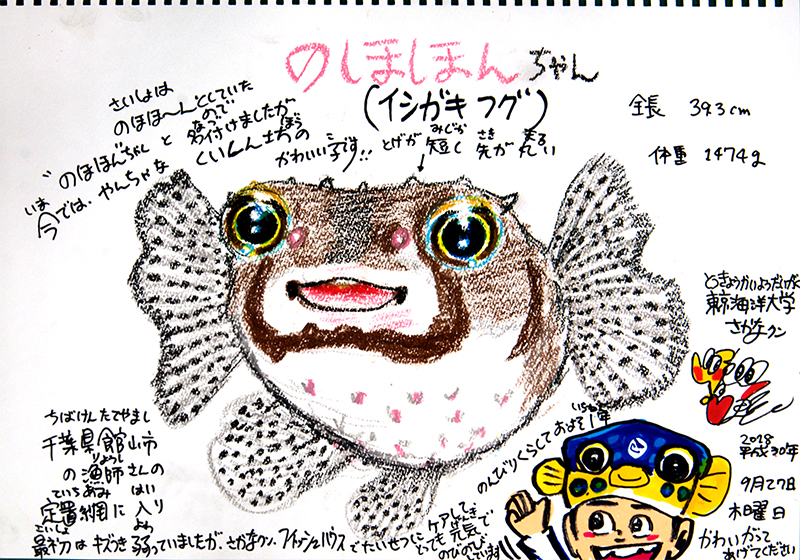 のほほんちゃん
(イシガキフグ)
さいしょは
のほほ〜んとしていた
ので
"のほほん"ちゃんと名付けましたが
なづ
いま
今では、やんちゃなくいしん坊の
ぼう
かわいい子です!!
とげが短く
みじか
先が丸い
さき まる
全長 39.3cm
体重 1474g
とうきょうかいようだいがく
東京海洋大学
さかなクン
2018
平成30年
9月27日
木曜日
かわいがって
あげてください
ちばけんたてやまし
千葉県館山市
りょうし
の漁師さんの
ていちあみ はい
定置網に入り
さいしょ よわ
最初はキズつき弱っていましたが、さかなクン、フィッシュハウスでたいせつに
ケアして
とても元気で
げんき
のびのび
のんびりくらしておよそ1年
いちねん